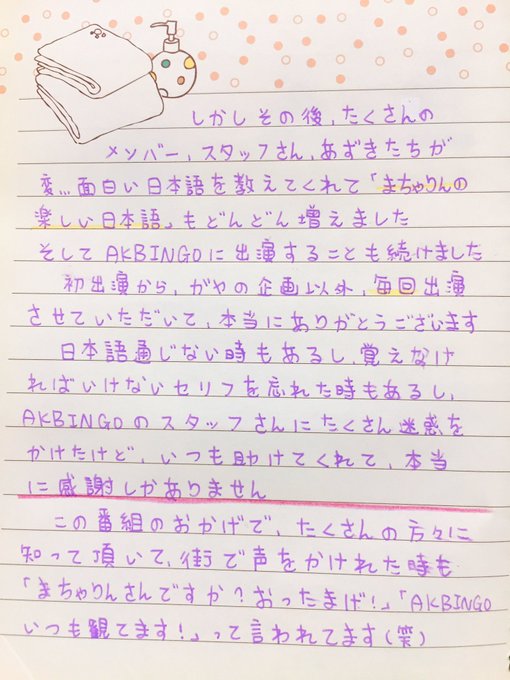 しかしその後、たくさんの
メンバー、スタッフさん、あずきたちが
変…面白い日本語を教えてくれて「まちゃりんの
楽しい日本語」もどんどん増えました
そしてAKBINGOに出演することも続けました
初出演から、がやの企画以外、毎回出演
させていただいて、本当にありがとうございます
日本語通じない時もあるし、覚えなけ
ればいけないセリフを忘れた時もあるし、
AKBINGOのスタッフさんにたくさん迷惑を
かけたけど、いつも助けてくれて、本当
に感謝しかありません
この番組のおかげで、たくさんの方々に
知って頂いて、街で声をかけれた時も
「まちゃりんさんですか?おったまげ!」「AKBINGO
いつも観てます!」って言われてます(笑)